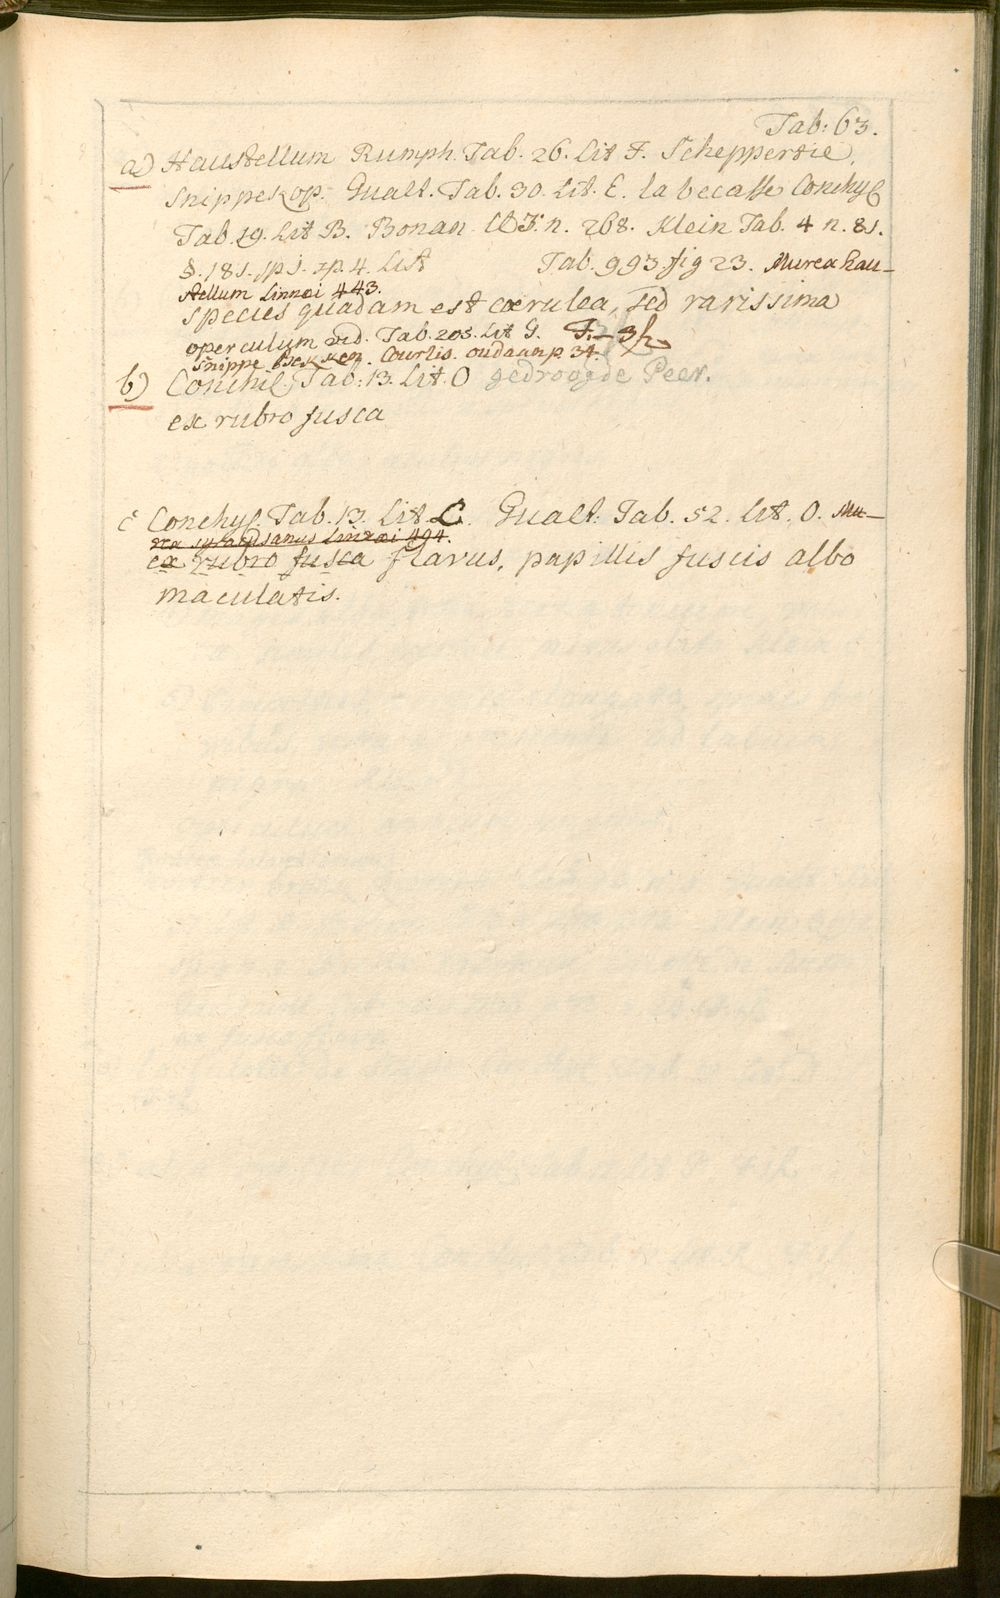 Tab: 63.
a) Haustellum Rumph. Tab. 26. Lit F. Scheppertie,
Snippekop. Gualt. Tab. 30. Lit. E. la becasse Conchyl
Tab. 19. Lit B. Bonan n. 268. Klein Tab. 4 n. 81.
§. 181. sp 1. sp. 4. List Tab. 993 fig 23. Murex hau-
stellum Linnæi 443.
species quadam est cœrulea, sed rarissima
operculum vid. Tab. 203. Lit G. F. - 3 h
Snippe Bekken. Courlis. oudaan p 34.
b) Conchil. Tab: 13. Lit. O gedroogde Peer.
ex rubro fusca
c Conchyl. Tab. 13. Lit. C. Gualt: Tab. 52. Lit. O. Mu-
rex Linnæi 494.
ex rubro fusca flavus, papillis fuscis albo
maculatis.